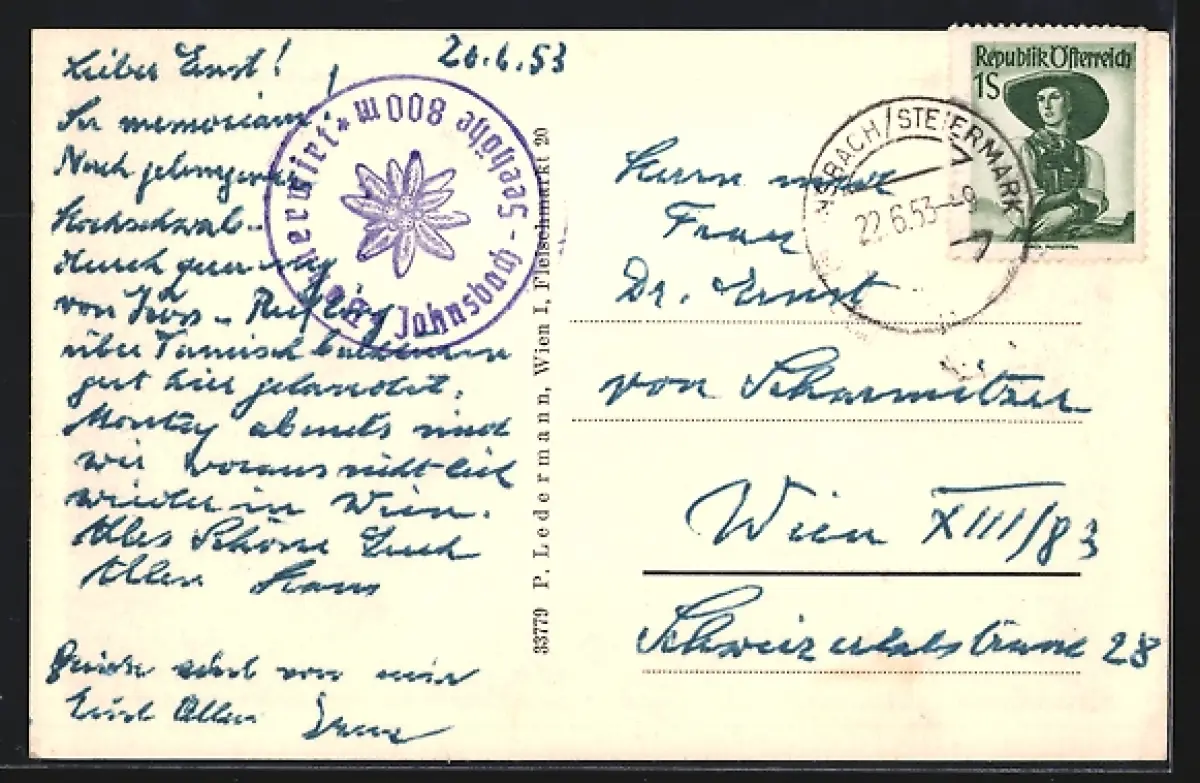 20.6.53
Lieber Ernst!
In memoriam!
Nach gelungener
Hochschwab-
durch
von
über
gut hier gelandet.
Montag abends sind
wir voraussichtlich
wieder in Wien.
Alles Schöne Euch
Allen Hans
auch von mir
Euch Allen
Jahnsbach - Seehöhe 800 m *
33779 P. Ledermann, Wien I, Fleischmarkt 20
Republik Österreich
1S
NSBACH/STEIERMARK
22.6.53-9
Herrn und
Frau
Dr. Ernst
von Scharmitzer
Wien XIII/83
Schweizertalstrasse 28